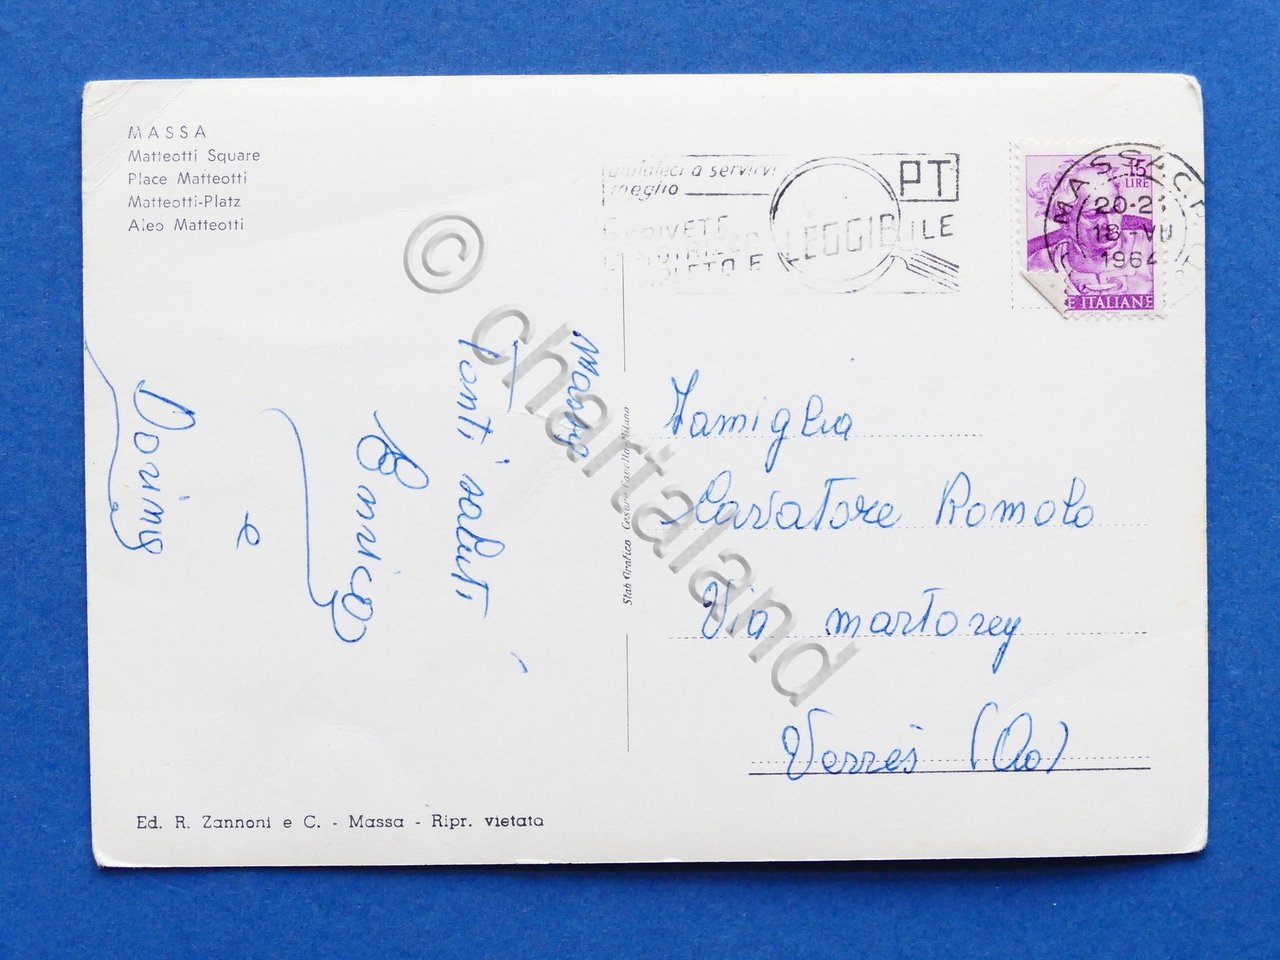 MASSA
Matteotti Square
Place Matteotti
Matteotti-Platz
Aleo Matteotti
aiutateci a servirvi
meglio
PT
SCRIVETE
INDIRIZZO
COMPLETO E LEGGIBILE
MASSA C.P.
15
LIRE
20-21
18-VII
1964
E ITALIANE
Massa
Tanti saluti
Enrico
e
Doring
Famiglia
Lavatore Romolo
Via martorey
Verrès (Ao)
Stab Grafico Cesare Capello Milano
Ed. R. Zannoni e C. - Massa - Ripr. vietata
© chartaland